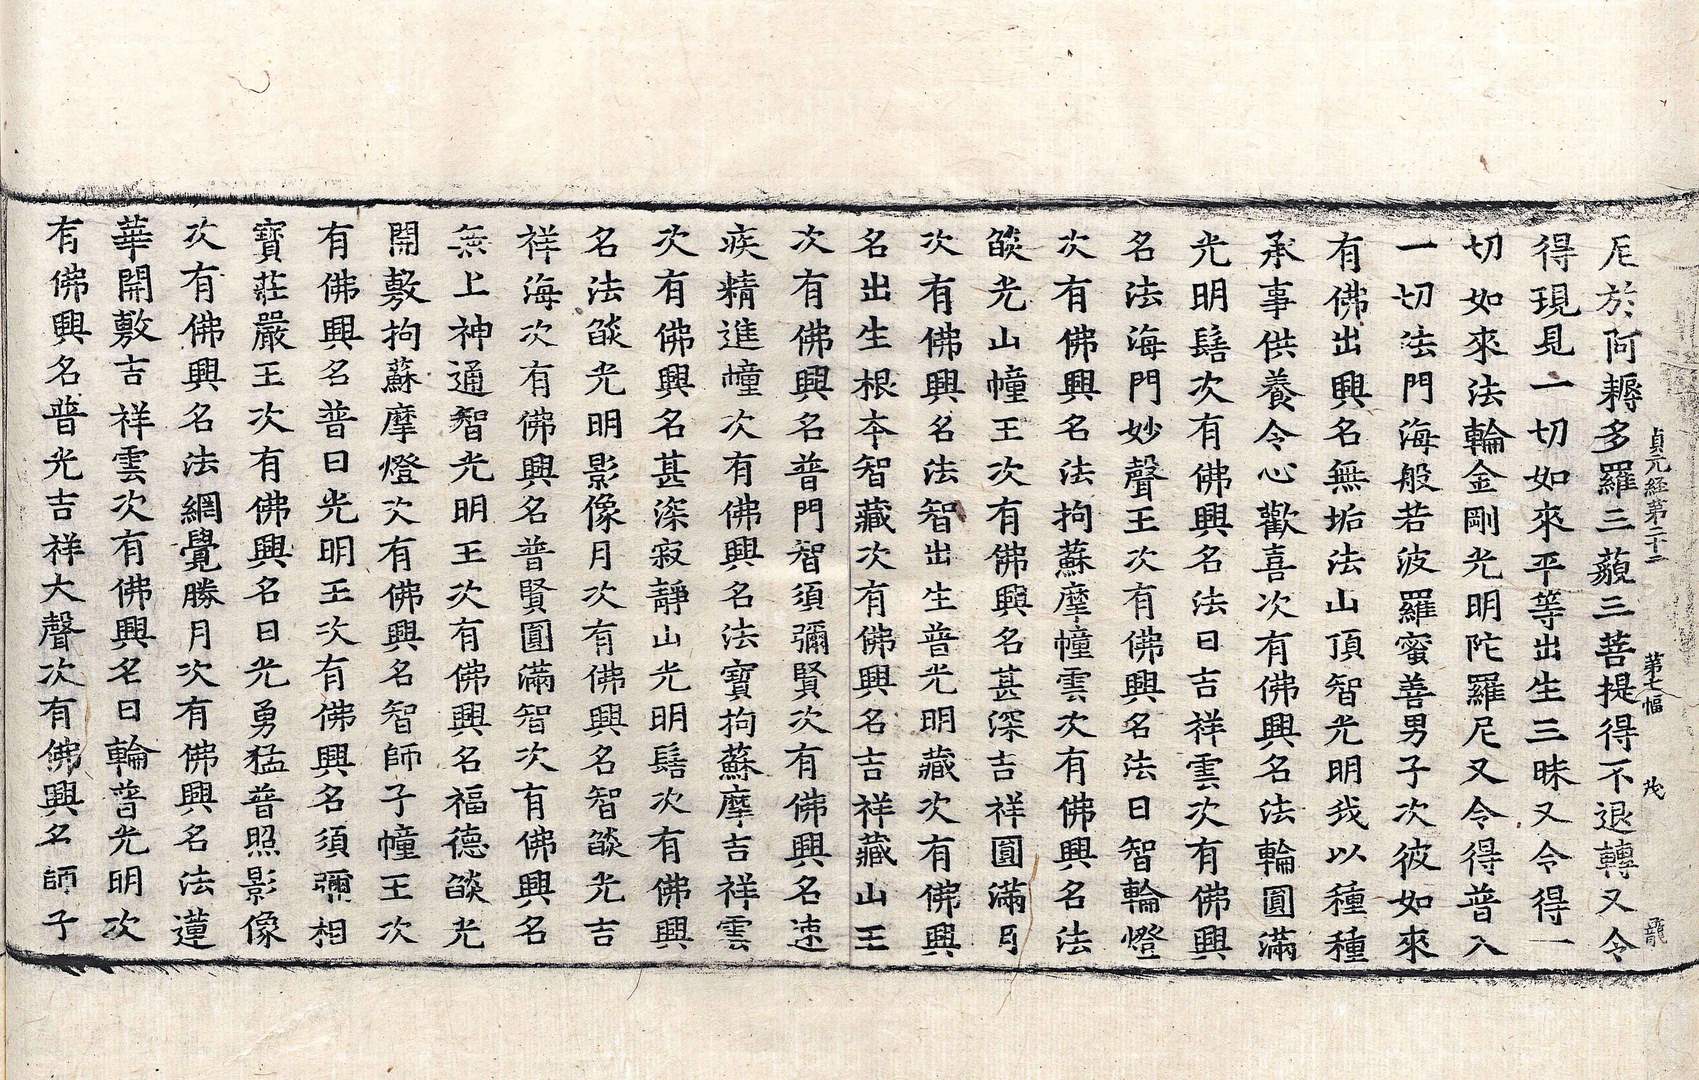 貞元経第二十二 第七幅 茂 龍
尼於阿耨多羅三藐三菩提得不退轉又令
得現見一切如來平等出生三昧又令得一
切如來法輪金剛光明陀羅尼又令得普入
一切法門海般若波羅蜜善男子次彼如來
有佛出興名無垢法山頂智光明我以種種
承事供養令心歡喜次有佛興名法輪圓滿
光明髻次有佛興名法日吉祥雲次有佛興
名法海門妙聲王次有佛興名法日智輪燈
次有佛興名法拘蘇摩幢雲次有佛興名法
燄光山幢王次有佛興名甚深吉祥圓滿月
次有佛興名法智出生普光明藏次有佛興
名出生根夲智藏次有佛興名吉祥藏山王
次有佛興名普門智須彌賢次有佛興名速
疾精進幢次有佛興名法寶拘蘇摩吉祥雲
次有佛興名甚深寂靜山光明髻次有佛興
名法燄光明影像月次有佛興名智燄光吉
祥海次有佛興名普賢圓滿智次有佛興名
無上神通智光明王次有佛興名福德燄光
開敷拘蘇摩燈次有佛興名智師子幢王次
有佛興名普日光明王次有佛興名須彌相
寶莊嚴王次有佛興名日光勇猛普照影像
次有佛興名法網覺勝月次有佛興名法蓮
華開敷吉祥雲次有佛興名日輪普光明次
有佛興名普光吉祥大聲次有佛興名師子